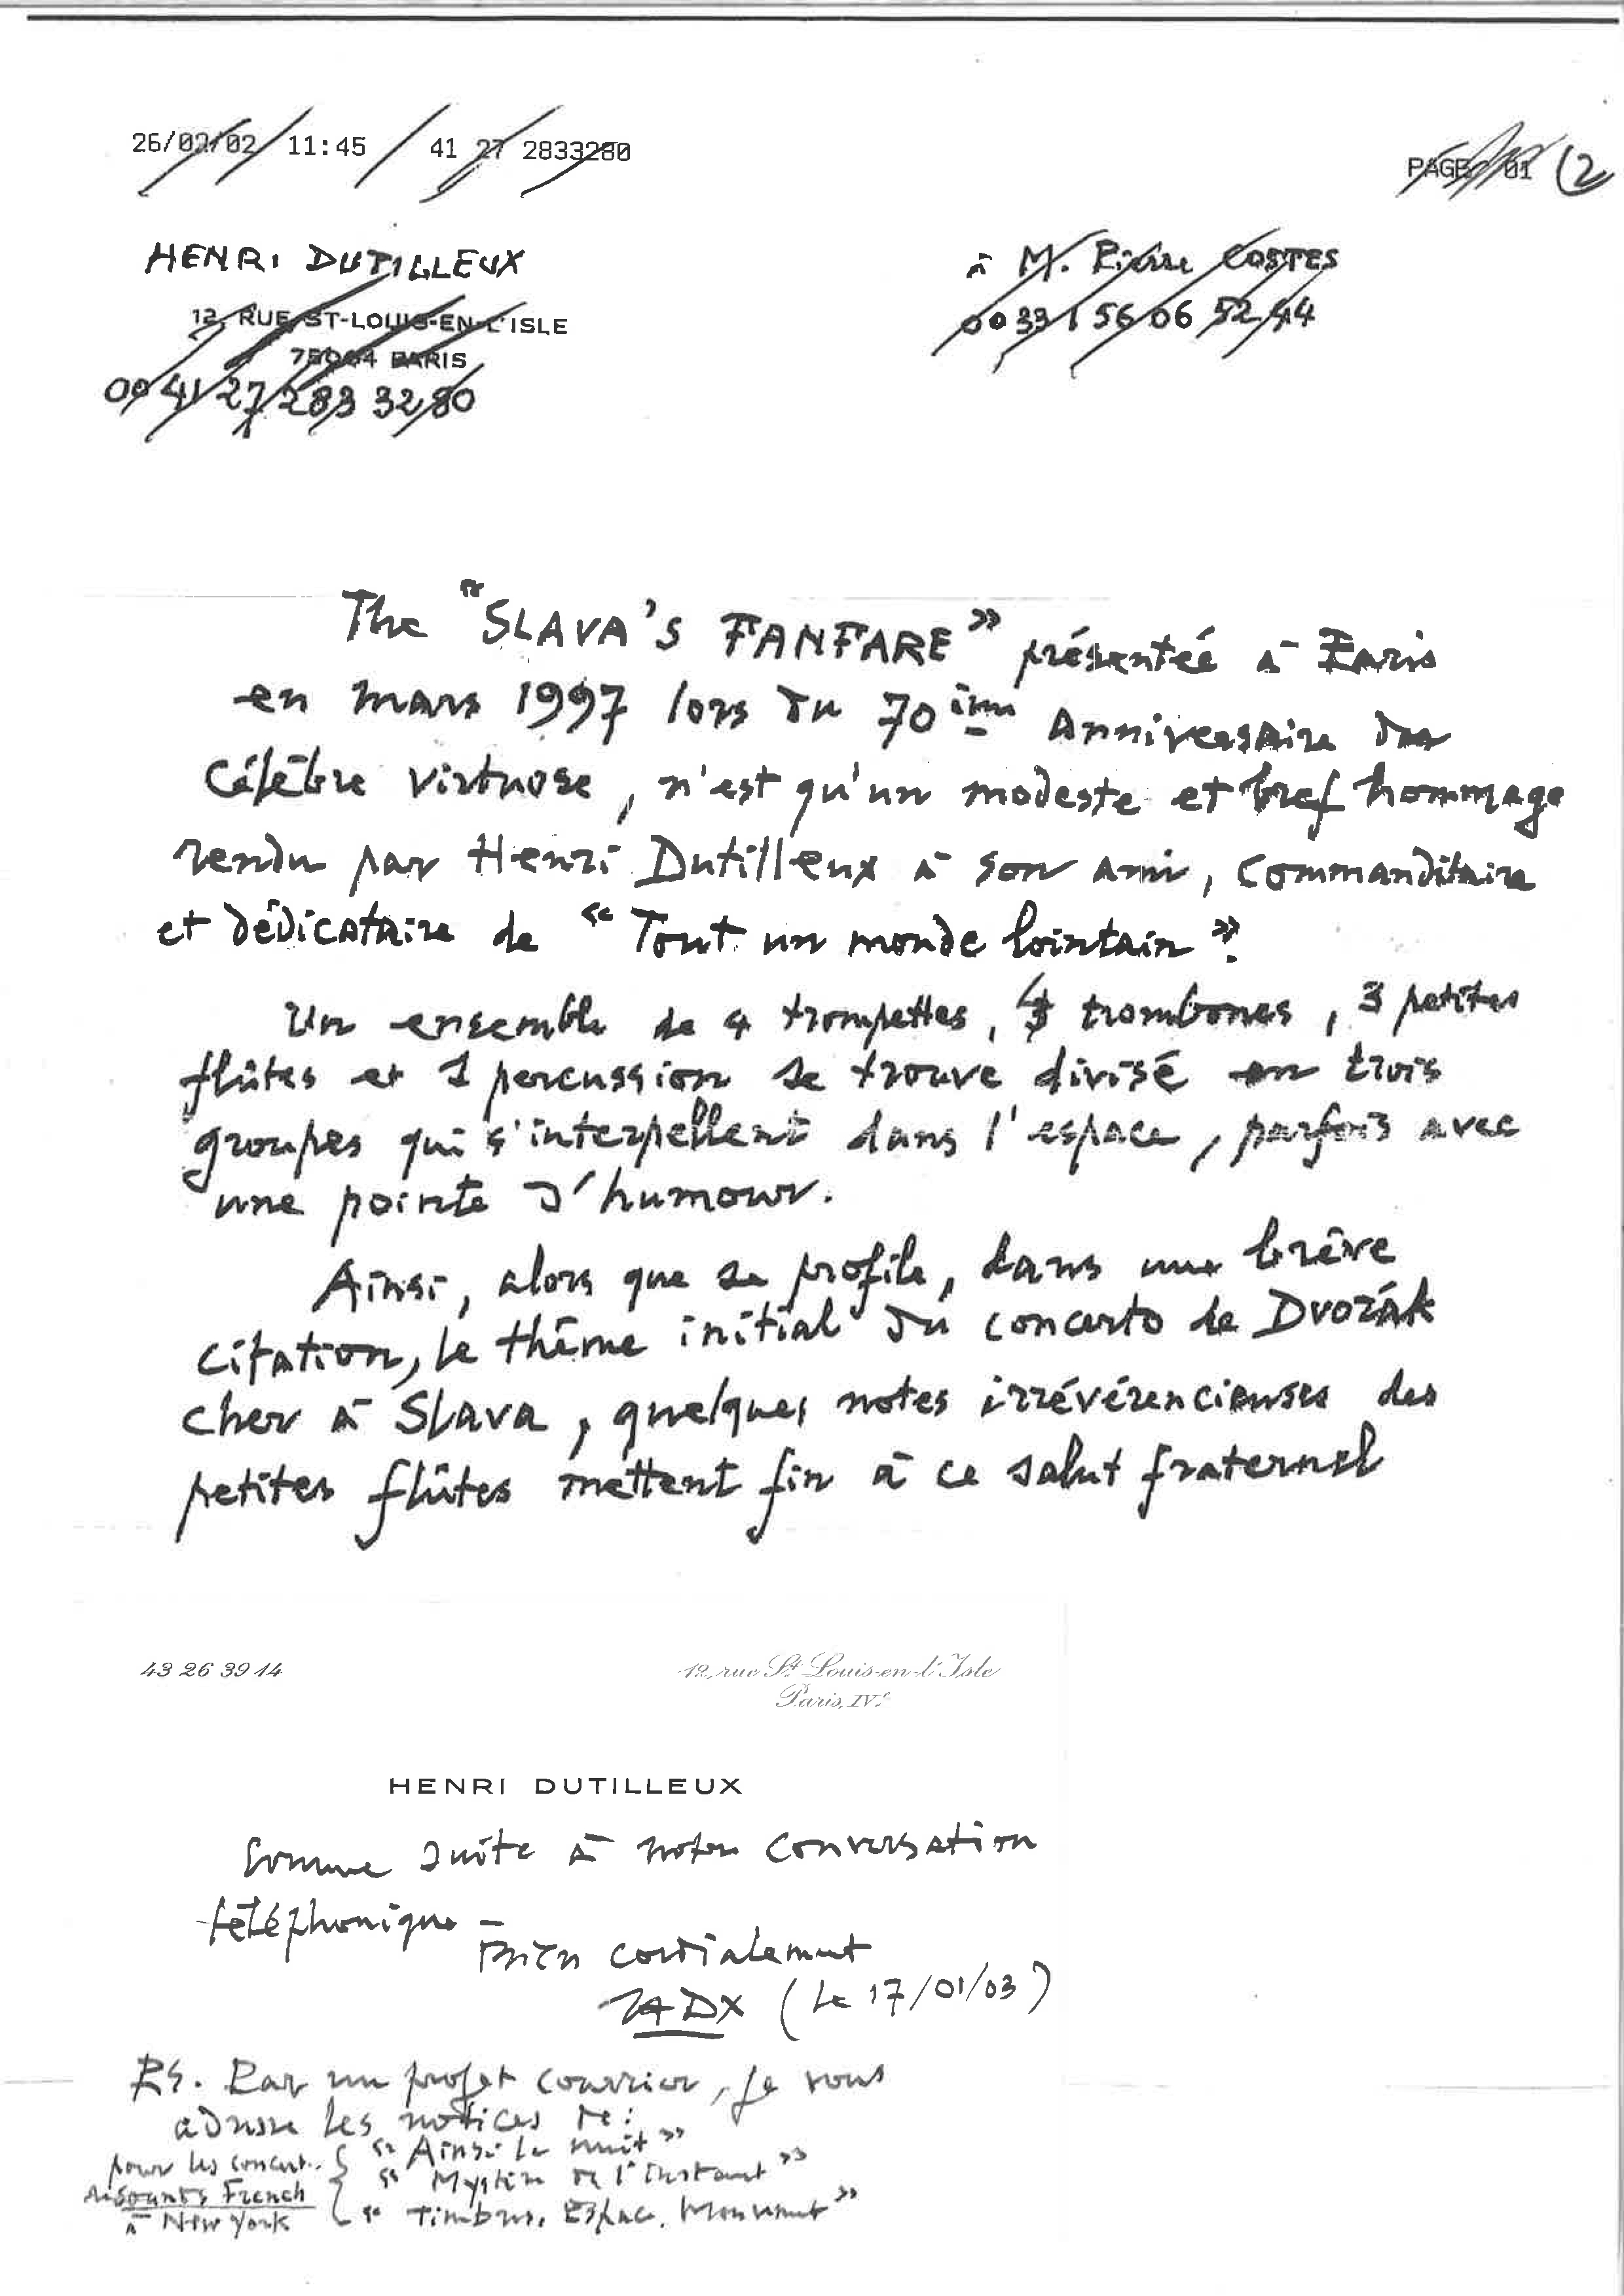 26/02/02 11:45 41 27 2833280 PAGE 01 (2
HENRI DUTILLEUX
12, RUE ST-LOUIS-EN-L'ISLE
75004 PARIS
00 41 27 283 32 80
à M. Pierre COSTES
00 33 1 56 06 52 44
The "SLAVA'S FANFARE" présentée à Paris
en mars 1997 lors du 70ième Anniversaire du
Célèbre virtuose, n'est qu'un modeste et bref hommage
rendu par Henri Dutilleux à son ami, Commanditaire
et dédicataire de "Tout un monde lointain".
Un ensemble de 4 trompettes, 4 trombones, 3 petites
flûtes et 1 percussion se trouve divisé en trois
groupes qui s'interpellent dans l'espace, parfois avec
une pointe d'humour.
Ainsi, alors que se profile, dans une brève
citation, le thème initial du concerto de Dvorák
cher à Slava, quelques notes irrévérencieuses des
petites flûtes mettent fin à ce salut fraternel
43 26 39 14 12, rue St Louis-en-l'Isle
Paris, IVe
HENRI DUTILLEUX
Comme suite à notre conversation
téléphonique –
Bien cordialement
(le 17/01/03)
PS. Par un courrier, je vous
adresse les notices de :
pour les concerts { "Ainsi la nuit"
Sounds French { "Mystère de l'instant"
à New York { "Timbres, Espace, Mouvement"